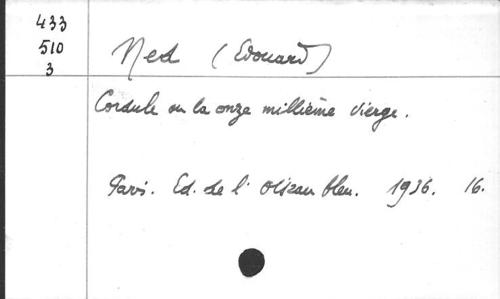 433
510
3
Ned (Edouard)
Cordule ou la onze millième vierge.
Paris. Ed. de l'Oiseau bleu. 1936. 16.